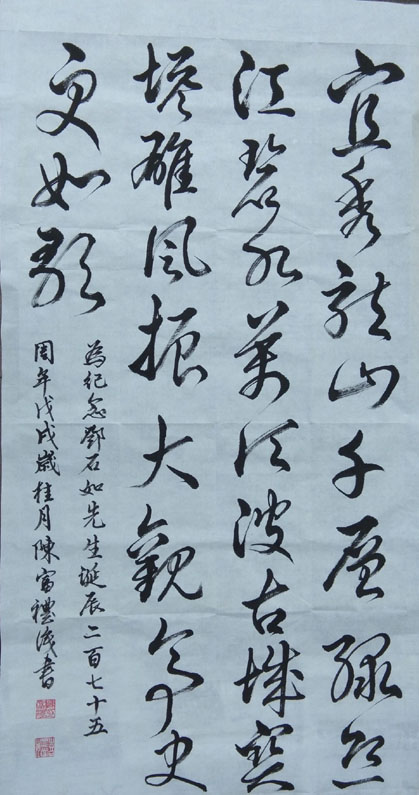 宜秀龍山千層綠
江碧水萬頃波古城寶
塔雄風振大觀今史
更如歌
為紀念鄧石如先生誕辰二百七十五
周年戊戌歲桂月陳富禮書